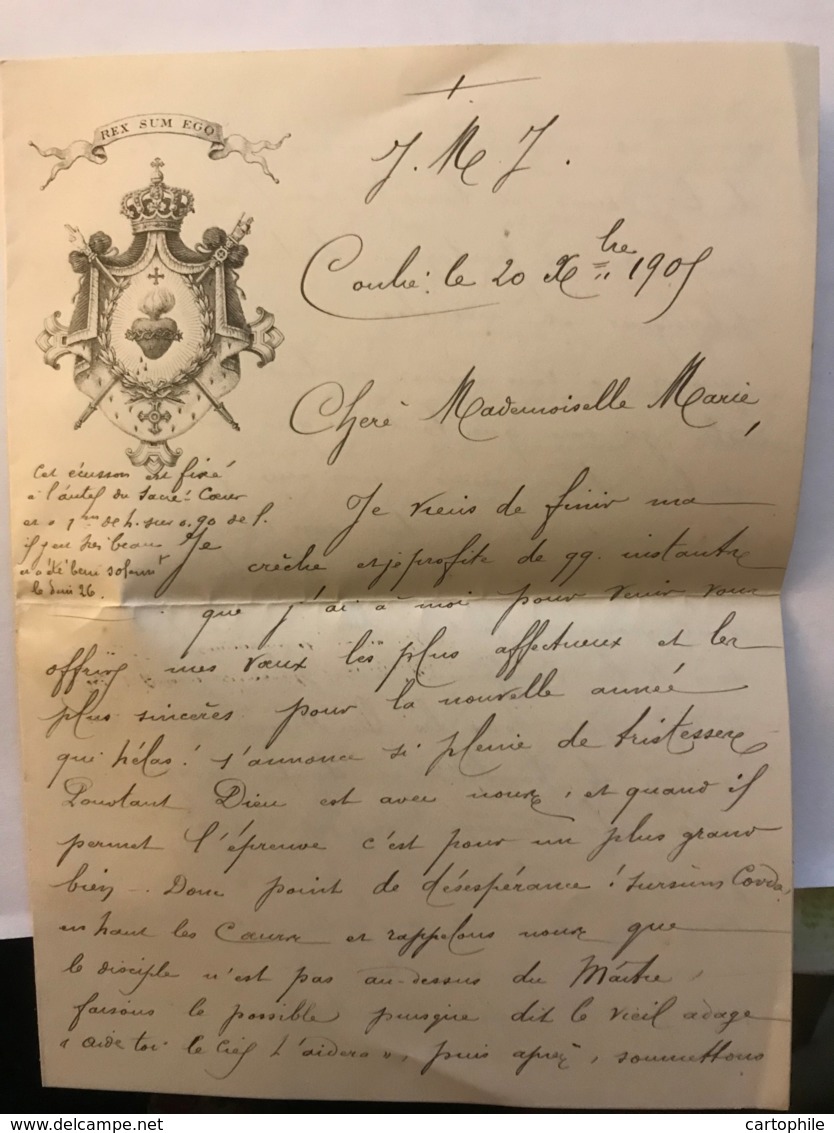 REX SUM EGO
J. M. J.
Couhé : le 20 Xbre 1905
Cheré Mademoiselle Marie,
Cet écusson est fixé
à l'autel du Sacré-Cœur
et a 1m de h. sur 0.90 de l.
il est très beau
et a été béni solem
le 26.
Je viens de finir ma
crêche et je profite de qq. instants
que j'ai à moi pour venir vous
offrir mes vœux les plus affectueux et les
plus sincères pour la nouvelle année
qui hélas ! s'annonce si pleine de tristesses
Pourtant Dieu est avec nous, et quand il
permet l'épreuve c'est pour un plus grand
bien - Donc point de désespérance ! Sursum Corda,
en haut les Cœurs et rappelons nous que
le disciple n'est pas au-dessus du Maître,
faisons le possible puisque dit le vieil adage
« aide toi le Ciel t'aidera », puis après, soumettons